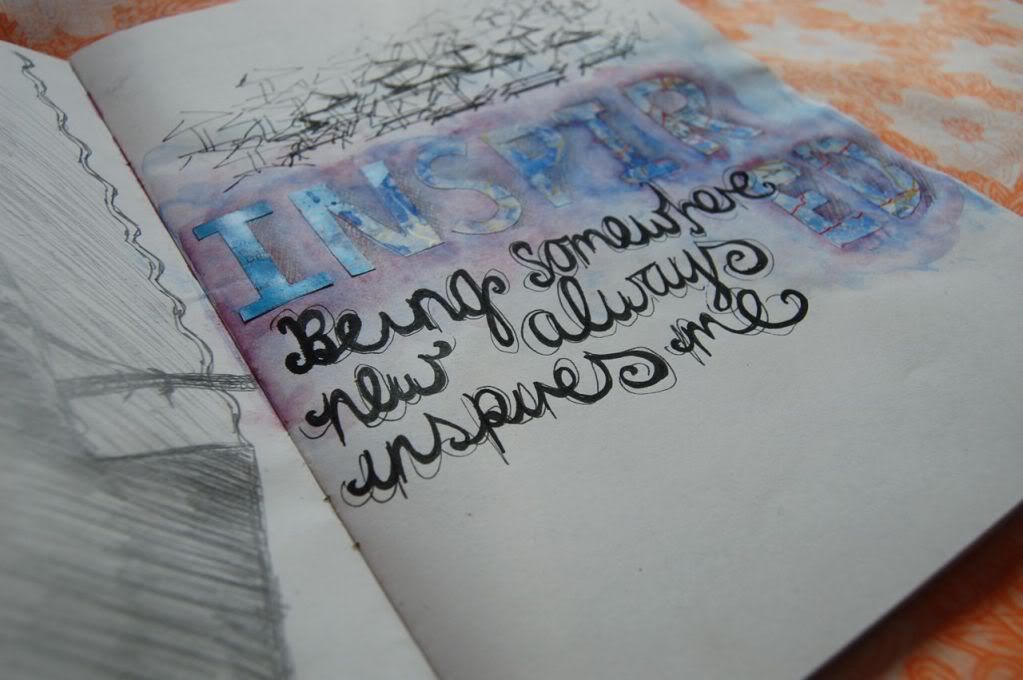 INSPIR
ED
Being somewhere
new always
inspires me